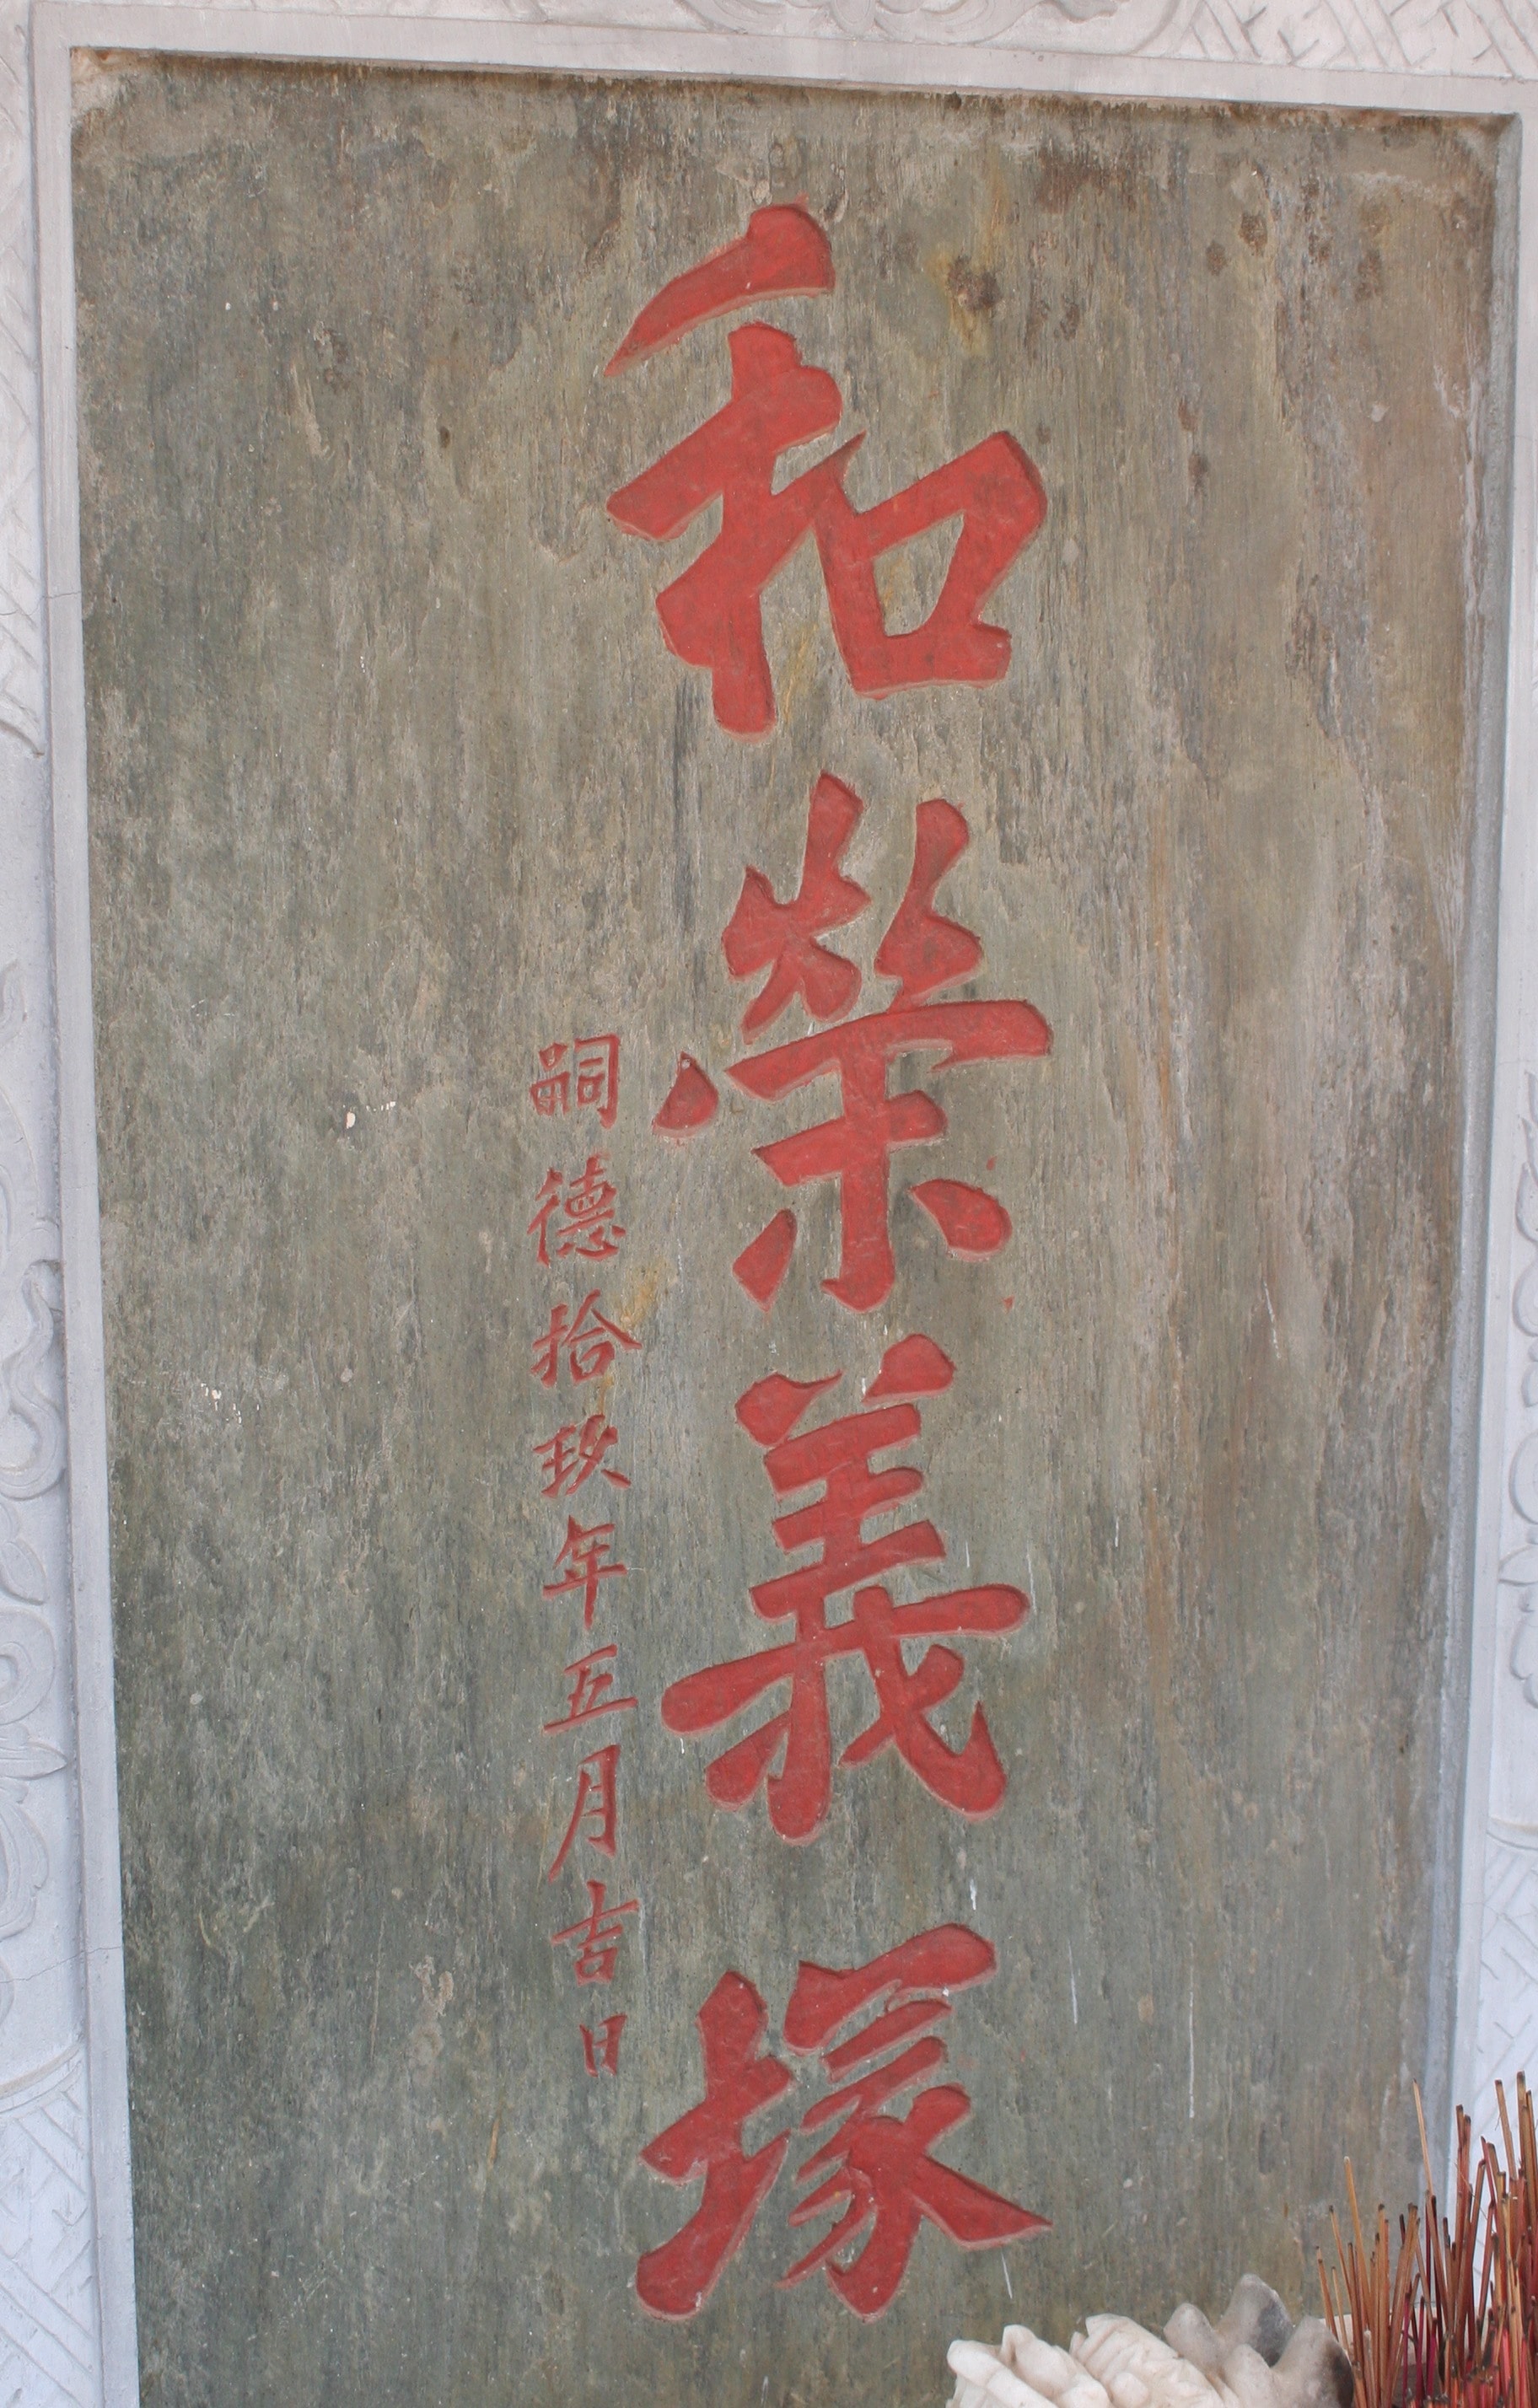 和榮義塚
嗣德拾玖年五月吉日